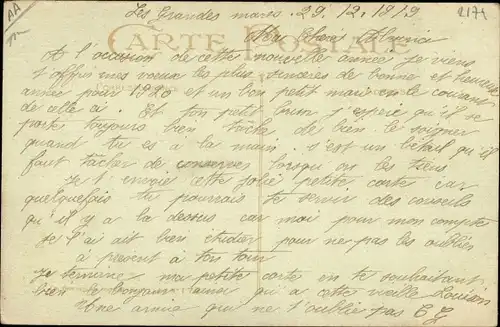 Les Grandes mares . 29. 12. 1919
2174
CARTE POSTALE
Ma chère
A l'occasion de cette nouvelle année je viens
t'offrir mes vœux les plus sincères de bonne et heureuse
année pour 1920 et un bon petit mari en le courant
de celle ci. Et ton petit j'espère qu'il se
porte toujours bien tâche de bien le soigner
quand tu es à la main. s'est un bétail qu'il
faut tâcher de conserver lorsqu on les tiens.
Je t envoie cette jolie petite carte car
quelquefois tu pourrais te servir des conseils
qu il y a la dessus car moi pour mon compte
je l'ai bien étudier pour ne pas les oublier
à présent à ton tour
je termine ma petite carte en te souhaitant
bien le bonjour qui a cette vieille
Une amie qui ne t'oublie pas C G